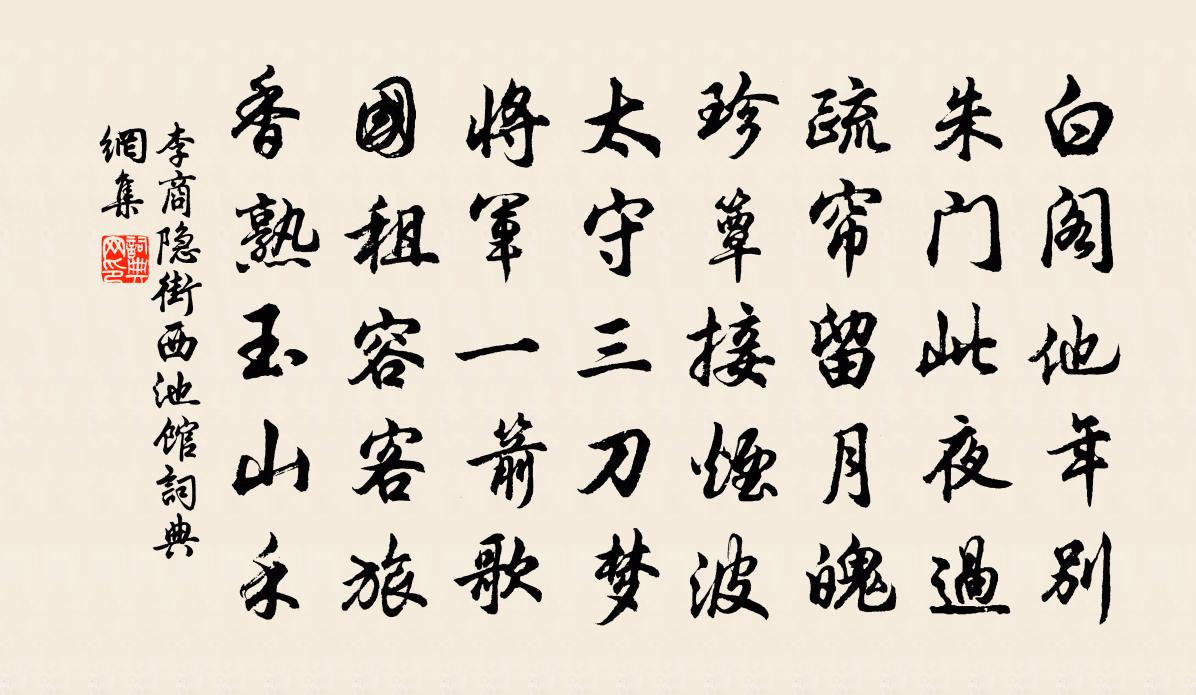 白阁他年别
朱门此夜過
疏帘留月魄
珍簟接煙波
太守三刀梦
將軍一箭歌
國租容客旅
香熟玉山禾
李商隐街西池馆詞典
網集
詞典
网印